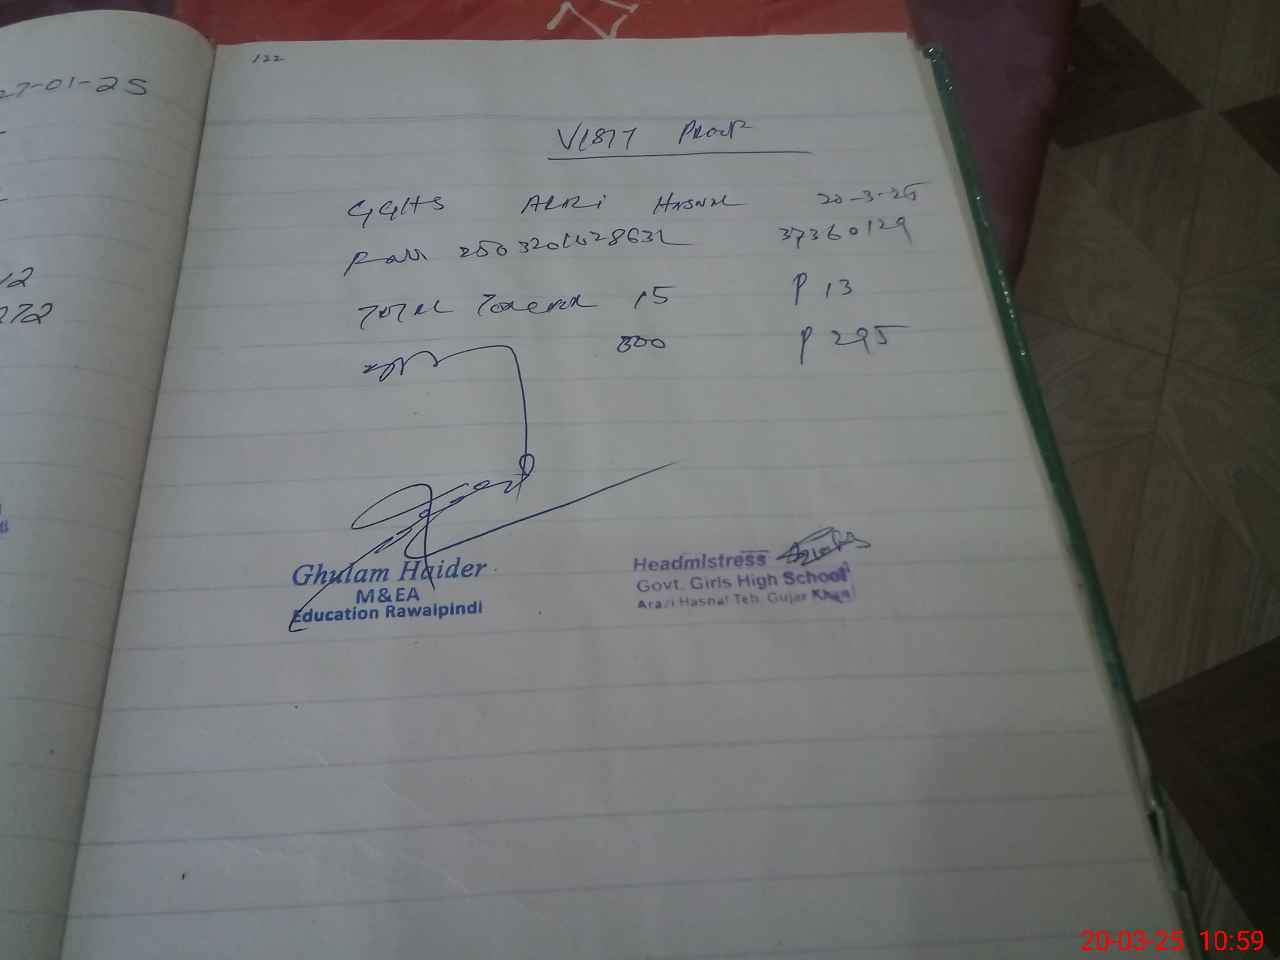 27-01-25
12
272
122
VISIT PROOF
GGHS ARAZI HASNAL 20-3-25
37360129
TOTAL 15 P 13
300 P 295
Ghulam Haider
M&EA
Education Rawalpindi
Headmistress
Govt. Girls High School
Arazi Hasnal Teh. Gujar Khan
20-03-25 10:59